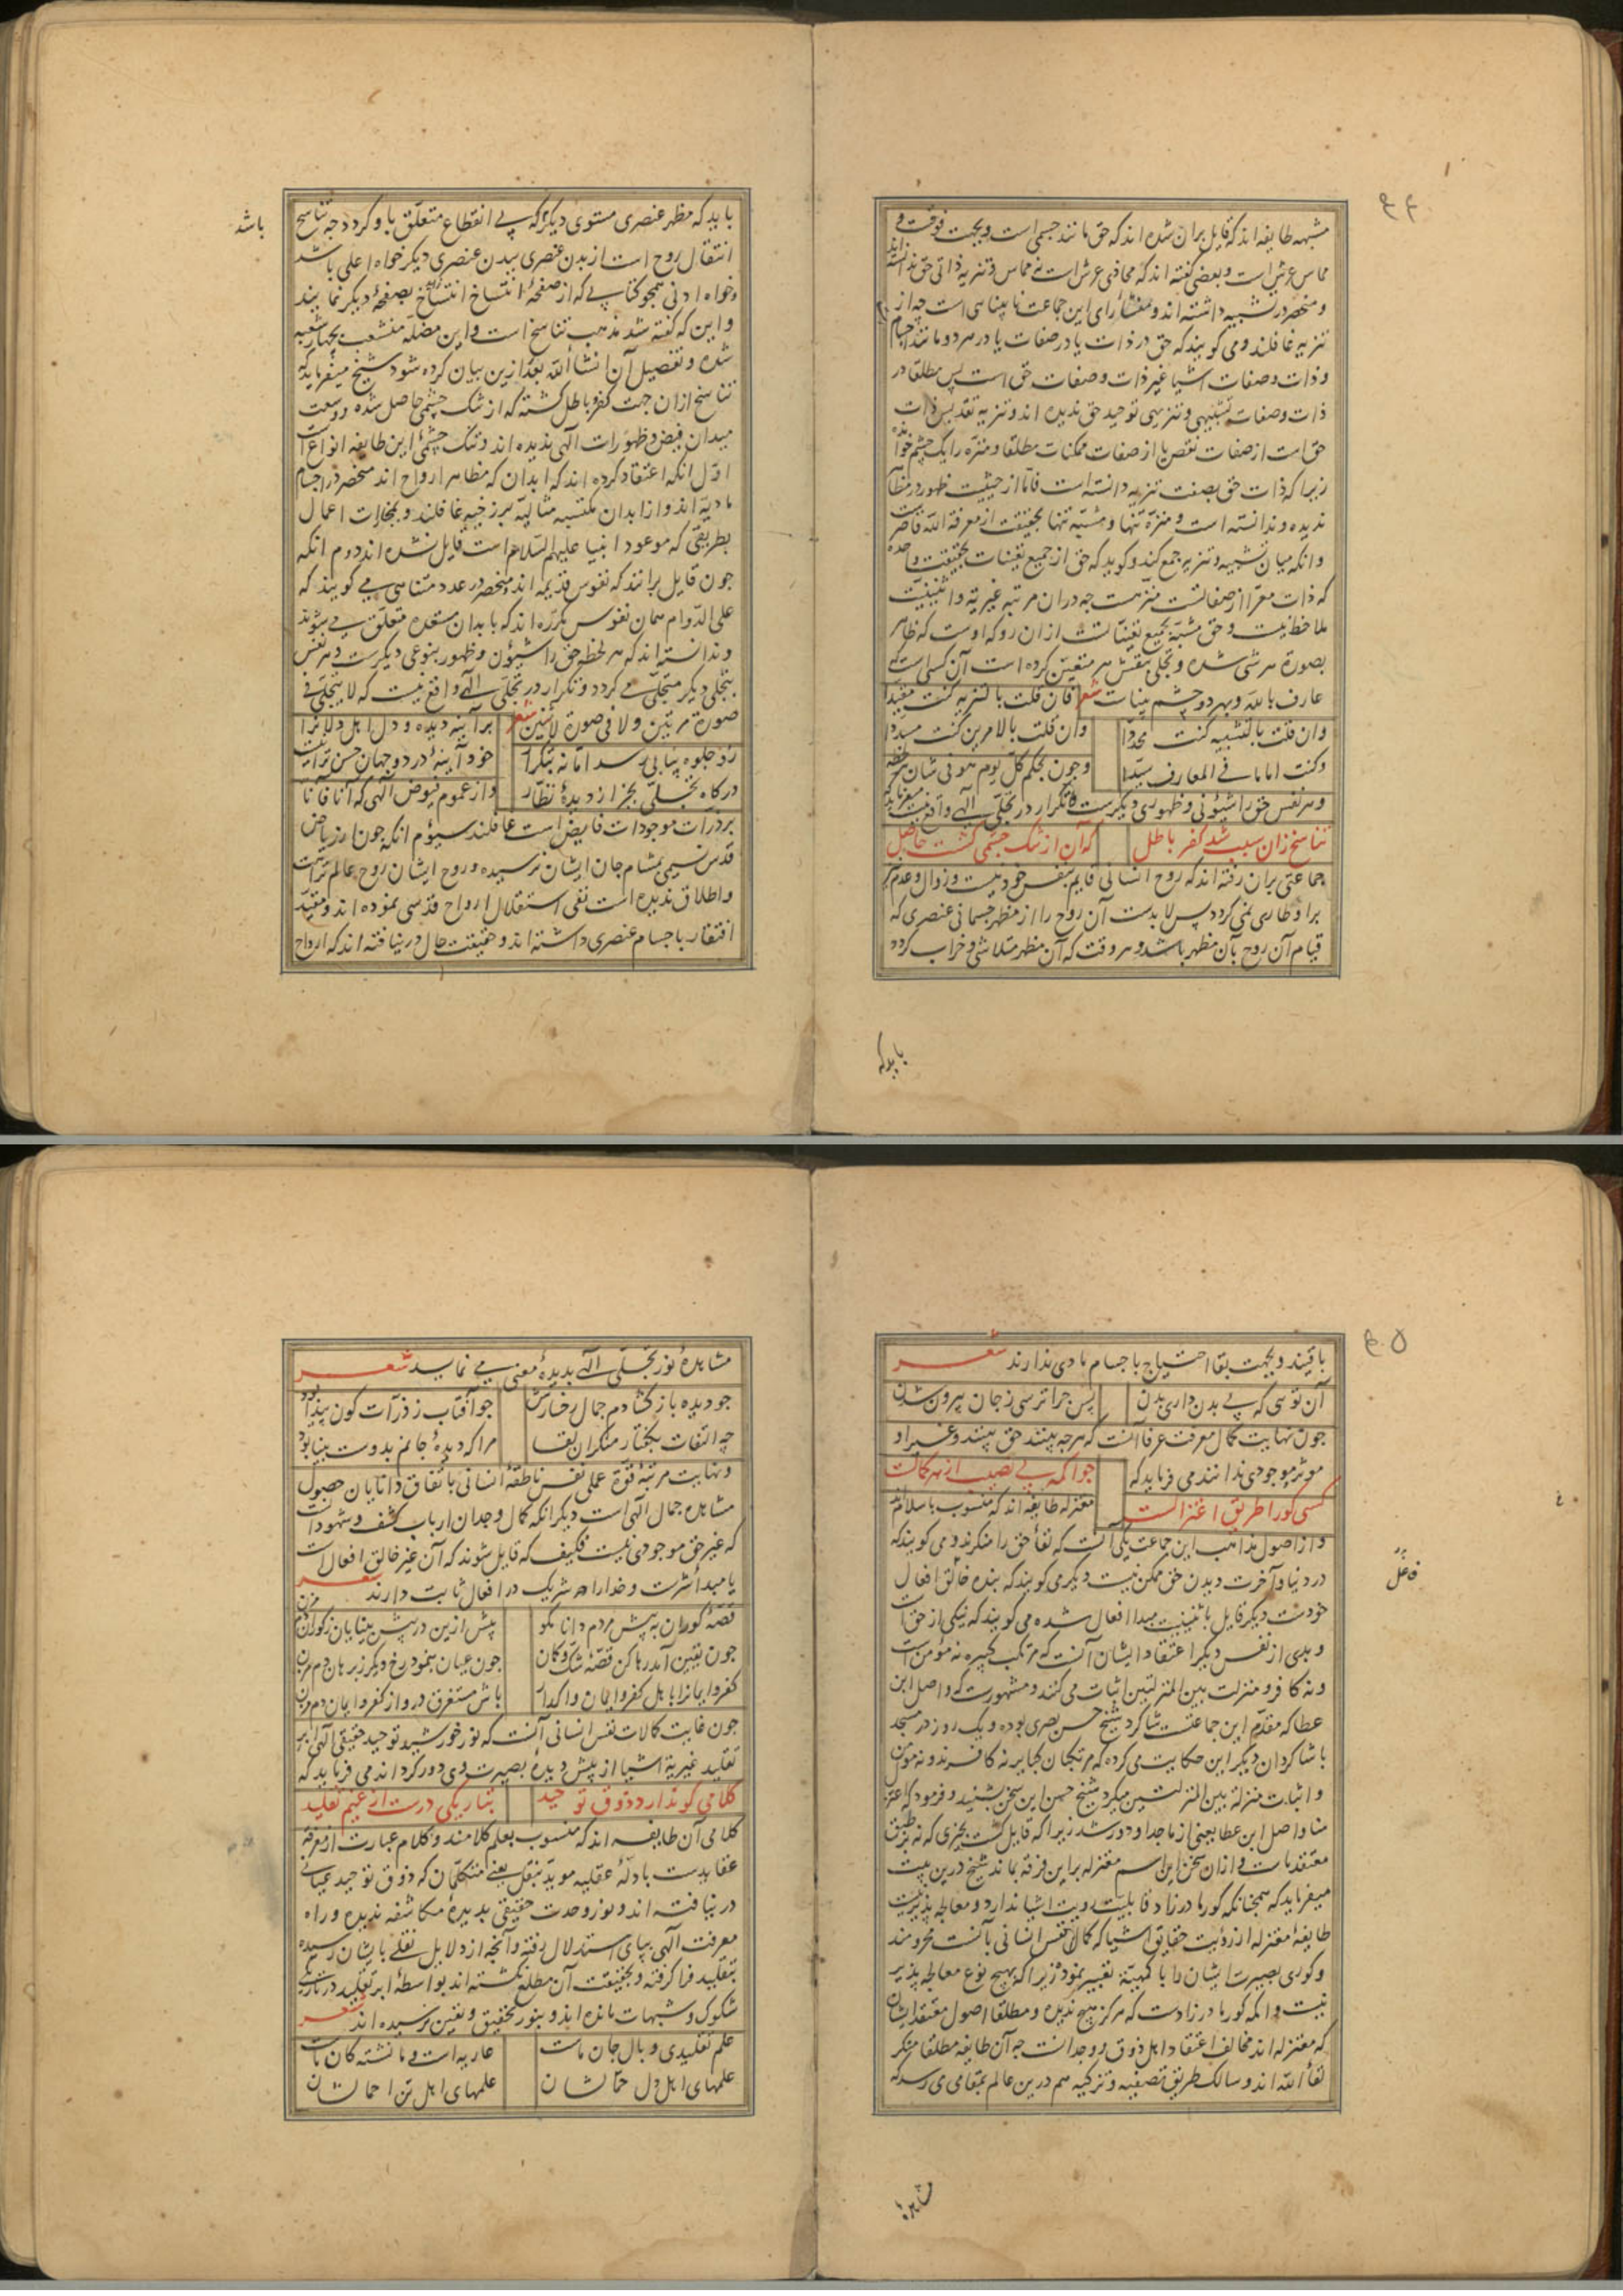 مشبهه طایفه اند که قایل بران شده اند که حق مانند جسمی است و بجهت فوقست و
مماس عرش است و بعضی گفته اند که محاذی عرش است نه مماس و تنزیه ذاتی حق ندانسته اند
و منحصر در تشبیه داشته اند و منشاء رای این جماعت نابینایی است چه از
تنزیه غافلند و می گویند که حق در ذات یا در صفات یا در هر دو مانند اجسام
و ذات و صفات اشیا غیر ذات و صفات حق است پس مطلقا در
ذات و صفات تشبیهی و تنزیهی توحید حق ندیده اند و تنزیه تقدیس ذات
حق است از صفات نقص یا از صفات ممکنات مطلقا و منزه را یک چشم خوانده
زیرا که ذات حق بصفت تنزیه دانسته است فاما از حیثیت ظهور در مظاهر
ندیده و ندانسته است و منزه تنها و مشبه تنها بحقیقت از معرفة الله قاصر است
وانکه میان تشبیه و تنزیه جمع کند و گوید که حق از جمیع تعینات بحقیقت واحده
که ذات معرا از صفاتست منزهست چه دران مرتبه غیریه و اثنینیت
ملاحظ نیست و حق مشبه بجمیع تعیناتست ازان رو که اوست که ظاهر
بصورة هر شی شده و تجلی بنقش هر متعین کرده است آن کسی است که
عارف بالله و بهر دو چشم بیناست شعر فان قلت بالتنزیه کنت مقیدا
وان قلت بالتشبیه کنت محددا وان قلت بالامرین کنت مسددا
وکنت اماما فی المعارف سیدا وچون بحکم کل یوم هو فی شان هر لحظه
و هر نفس حق را شئونی و ظهوری دیگرست و تکرار در تجلی الهی واقع نیست میفرماید که
تناسخ زان سبب شد کفر و باطل که آن از تنک چشمی گشت حاصل
جماعتی بران رفته اند که روح انسانی قایم بنفس خودست و زوال و عدم
برو طاری نمی گردد پس لابدست آن روح را از مظهر جسمانی عنصری که
قیام آن روح بآن مظهر باشد و هر وقت که آن مظهر متلاشی و خراب گردد
باید که
باید که مظهر عنصری مستوی دیگر که بی انقطاع متعلق باو گردد چه تناسخ
باشد
انتقال روح است از بدن عنصری ببدن عنصری دیگر خواه اعلی باشد
وخواه ادنی همچو کتابی که از صفحهٔ انتساخ بصفحهٔ دیگر نمایند
و این که گفته شد مذهب تناسخ است و این مضله منشعب بچهار شعبه
شده و تفصیل آن انشاء الله بعد ازین بیان کرده شود شیخ میفرماید که
تناسخ ازان جهت کفر و باطل گشته که از تنک چشمی حاصل شده و وسعت
میدان فیض و ظهورات الهی ندیده اند و تنک چشمی این طایفه انواع است
اول انکه اعتقاد کرده اند که ابدان که مظاهر ارواح اند منحصر در اجسام
مادیه اند و از ابدان مکتسبه مثالیه برزخیه غافلند و بمجازات اعمال
بطریقی که موعود انبیا علیهم السلام است قایل نشده اند دوم انکه
چون قایل برانند که نفوس قدیمه اند و منحصر در عدد متناهی می گویند که
علی الدوام همان نفوس مکرره اند که بابدان مستعده متعلق می شوند
و ندانسته اند که هر لحظه حق را شئون و ظهور بنوعی دیگرست و هر نفس
بتجلی دیگر متجلی می گردد و تکرار در تجلی الهی واقع نیست که لا یتجلی فی
صورة مرتین ولا فی صورة لاثنین شعر بر آینه دیده و دل اهل ولا را
رو جلوه پیاپی رسد اما نه بتکرار خود آینهٔ در دو جهان حسن تراست
در گاه تجلی بجز از دیدهٔ نظار واز عموم فیوض الهی که آنا فآنا
بر ذرات موجودات فایض است غافلند سیوم انکه چون از ریاض
قدس نسیمی بمشام جان ایشان نرسیده و روح ایشان روح عالم تراست
واطلاق ندیده است نفی استقلال ارواح قدسی نموده اند و مقید
افتقار باجسام عنصری داشته اند و حقیقت حال در نیافته اند که ارواح
باقیند و بجهت بقا احتیاج باجسام مادی ندارند شعر
آن توئی که بی بدن داری بدن پس چرا ترسی ز جان بیرون شدن
چون نهایت کمال معرفت عرفا آنست که هر چه بینند حق بینند و غیر او
موثر موجودی ندانند می فرماید که چو اکمه بی نصیب از هر کمالست
کسی کو را طریق اعتزالست معتزله طایفه اند که منسوب باسلامند
و از اصول مذاهب این جماعت یکی آنست که لقاء حق را منکرند و می گویند که
در دنیا و آخرت دیدن حق ممکن نیست دیگر می گویند که بنده خالق افعال
فاعل
خودست دیگر قایل باثنینیت مبدا افعال شده می گویند که نیکی از حق است
و بدی از نفس دیگر اعتقاد ایشان آنست که مرتکب کبیره نه مؤمن است
و نه کافر و منزلت بین المنزلتین اثبات می کنند و مشهورست که واصل ابن
عطا که مقدم این جماعتست شاگرد شیخ حسن بصری بوده و یک روز در مسجد
با شاگردان دیگر این حکایت می کرده که مرتکبان کبایر نه کافرند و نه مومن
و اثبات منزلة بین المنزلتین میکرد شیخ حسن این سخن بشنید و فرمود که اعتزل
عنا واصل ابن عطا یعنی از ما جدا و دور شد زیرا که قایل گشت بچیزی که نه بر طبق
معتقد ماست و ازان سخن این اسم معتزله برین فرقه بماند شیخ درین بیت
میفرماید که همچنانکه کور مادرزاد قابلیت رویت اشیا ندارد و معالجه پذیر نیست
طایفهٔ معتزله از رؤیت حقایق اشیا که کمال نفس انسانی بآنست محرومند
و کوری بصیرت ایشان را با کمهیة تعبیر نمود زیرا که بهیچ نوع معالجه پذیر
نیست و اکمه کور مادرزادست که هرگز هیچ ندیده و مطلقا اصول معتقد ایشان
که معتزله اند مخالف اعتقاد اهل ذوق و وجدانست چه آن طایفه مطلقا منکر
لقاء الله اند و سالک بطریق تصفیه و تزکیه هم درین عالم بمقامی می رسد که
مشاهدهٔ
مشاهدهٔ نور تجلی الهی بدیدهٔ معنی می نماید شعر
چو دیده باز گشادم جمال رخسارش چو آفتاب ز ذرات کون پیدا بود
چه التفات بگفتار منکران لقا مرا که دیدهٔ جانم بدوست بینا بود
و نهایت مرتبهٔ قوة عملی نفس ناطقهٔ انسانی باتفاق دانایان حصول
مشاهده جمال الهی است دیگر انکه کمال وجدان ارباب کشف و شهود آنست
که غیر حق موجودی نیست فکیف که قایل شوند که آن غیر خالق افعال است
یا مبداء شرست و خدا را شریک در افعال ثابت دارند شعر
قصهٔ کوران به پیش مردم دانا مگو پیش ازین در پیش بینایان ز کوران دم مزن
چون یقین آمد رها کن قصهٔ شک و گمان چون عیان بنمود رخ دیگر ز برهان دم مزن
کفر و ایمان را باهل کفر و ایمان واگذار باش مستغرق درو از کفر و ایمان دم مزن
چون غایت کمالات نفس انسانی آنست که نور خورشید توحید حقیقی الهی ابر
تقلید غیریة اشیا از پیش دیدهٔ بصیرت وی دور گرداند می فرماید که
کلامی کو ندارد ذوق توحید بتاریکی درست از غیم تقلید
کلامی آن طایفه اند که منسوب بعلم کلامند و کلام عبارت از معرفة
عقایدست بادلهٔ عقلیه موید بنقل یعنی متکلمان که ذوق توحید عیانی
در نیافته اند و نور وحدت حقیقی بدیدهٔ مکاشفه ندیده و راه
معرفت الهی بپای استدلال رفته و آنچه از دلایل نقلی بایشان رسیده
بتقلید فرا گرفته و بحقیقت آن مطلع نگشته اند بواسطهٔ ابر تقلید در تاریکی
شکوک و شبهات مانده اند و بنور تحقیق و یقین نرسیده اند شعر
علم تقلیدی وبال جان ماست عاریه است و ما نشسته کان ماست
علمهای اهل دل حمالشان علمهای اهل تن احمالشان